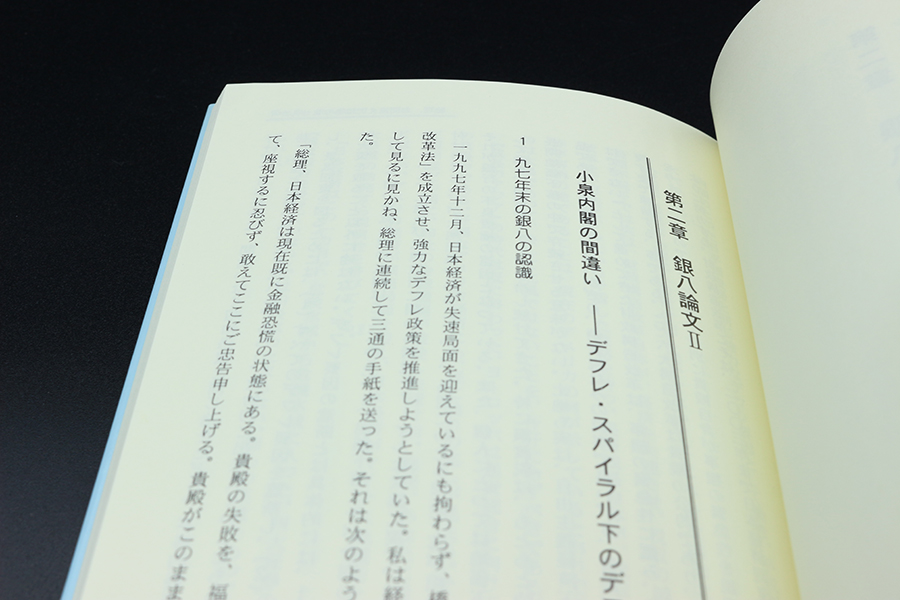 第二章 銀八論文Ⅱ
小泉内閣の間違い ――デフレ・スパイラル下のデ
1 九七年末の銀八の認識
一九九七年十二月、日本経済が失速局面を迎えているにも拘わらず、橋
改革法」を成立させ、強力なデフレ政策を推進しようとしていた。私は経
して見るに見かね、総理に連続して三通の手紙を送った。それは次のよう
た。
「総理、日本経済は現在既に金融恐慌の状態にある。貴殿の失敗を、福
て、座視するに忍びず、敢えてここにご忠告申し上げる。貴殿がこのまま